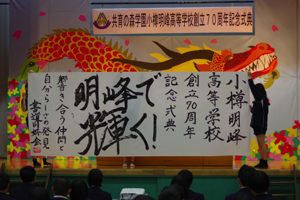 共育の森学園小樽明峰高等学校創立70周年記念式典
小樽明峰
高等学校
創立70周年
記念式典
明峰で
輝く!
響き合う仲間と
自分らしさの発見
書道同好会